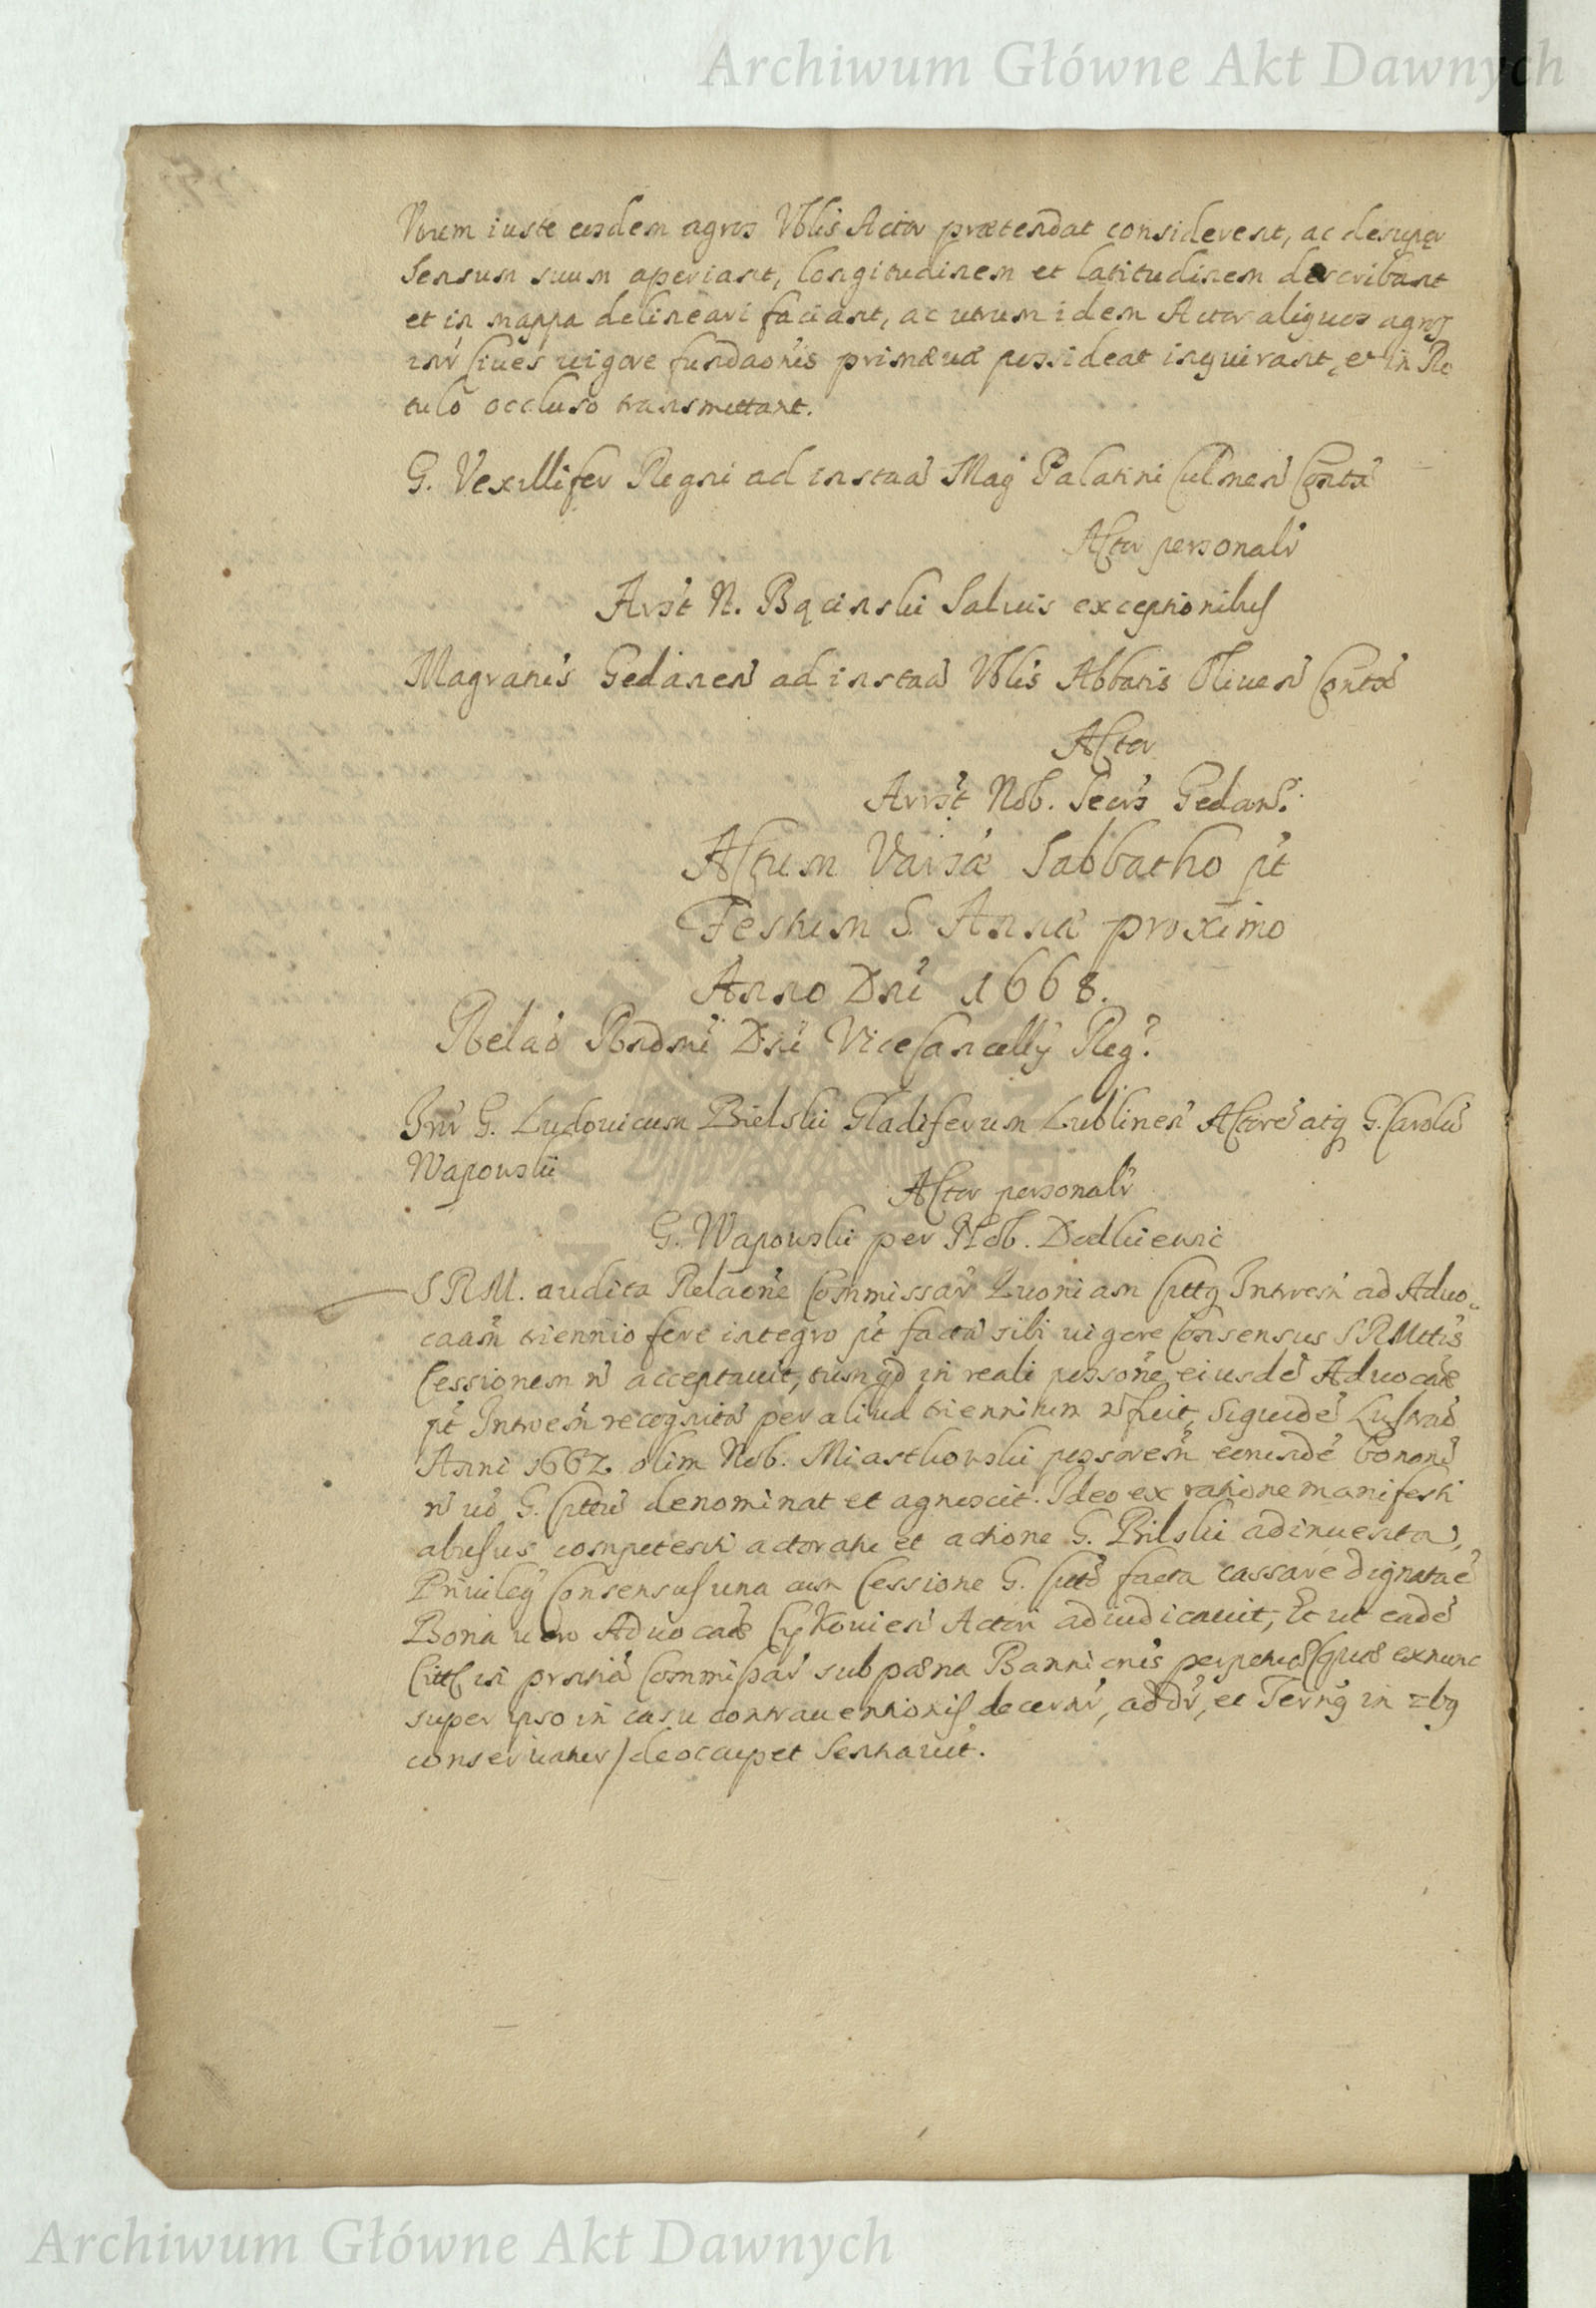 Archiwum Główne Akt Dawnych
Vtrum iuste eosdem agros Vblis Actor prætendat considerent, ac desuper
Sensum suum aperiant, longitudinem et latitudinem describant
et in mappa delineari faciant, ac utrum idem Actor aliquos agros
intr Ciues uigore fundaonis primæuæ possideat inquirant, et in Ro
tulo occluso transmittant.
G. Vexillifer Regni ad instaa Mag Palatini Culmen Conta
Actor personalr
Arrst N. Bącinski Saluis exceptionibus
Magratus Gedanen ad instaa Vblis Abbatis Oliuen Conta
Actor
Arrst Nob. Secrs Gedans.
Actum Varsæ Sabbatho pt
Festum S. Annæ proximo
Anno Dni 1668.
Relao Rndmi Dni ViceCancellÿ Reg.
Intr G. Ludouicum Bielski Gladiferum Lublinen Actore atq G. Carolu
Wapowski
Actor personalr
G. Wapowski per Nob. Dedkiewic
S R M. audita Relaone Commissar Quoniam Cittq Intrem ad Aduo-
caam triennio fere integro pt facta sibi uigore Consensus S R Mttis
Cessionem n acceptauit, tum qd in reali possone eiusde Aduocaæ
pt Intrem recognita per aliud triennium n fuit, Siquide Lustrao
Anni 1662 olim Nob. Miastkowski possorem eorunde bonoru
n uo G. Cittu denominat et agnoscit. Ideo ex ratione manifesti
abusus competenti actoratu et actione G. Bilski adinuenta,
Priuileÿ Consensus una cum Cessione G. Citto facta cassare dignata e
Bona uero Aduocaæ Actori adiudicauit, Et ut eade
Citt in præsntia Commissar sub pæna Bannionis perpetuæ (quæ exnunc
super ipso in casu contrauentionis decernr, addr, et Termq in
conseruatur) deoccupet Sentauit.
Archiwum Główne Akt Dawnych